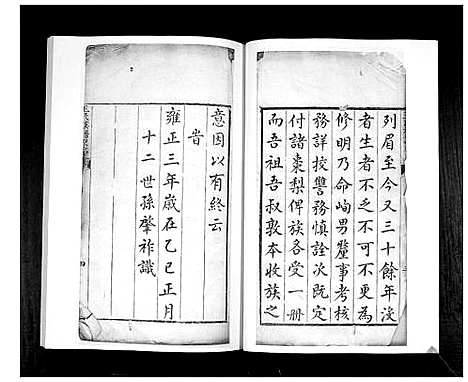 列眉至今又三十餘年沒
者生者不乏不可不更為
修明乃命峋男釐事考核
務詳校讐務慎詮次既定
付諸棗梨俾族各受一册
而吾祖吾叔敦本收族之
意因以有終云
旹
雍正三年歲在乙巳正月
十二世孫肇祚識